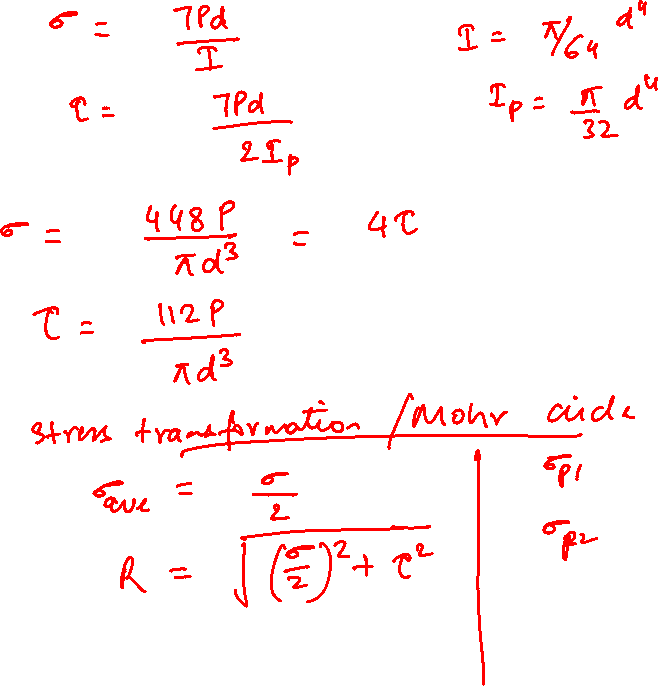 σ = 7Pd/I    I = π/64 d⁴
τ = 7Pd/2Iₚ    Iₚ = π/32 d⁴
σ = 448 P/πd³ = 4τ
τ = 112 P/πd³
stress transformation / Mohr circle
σave = σ/2    σp1
R = √((σ/2)² + τ²)    σp2